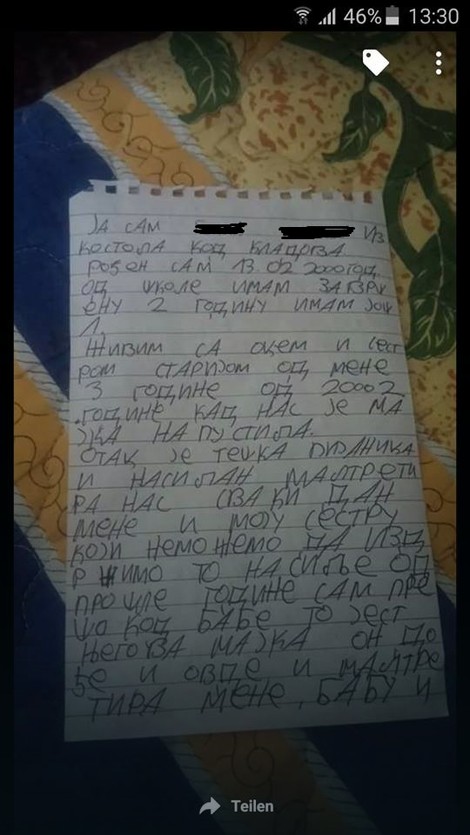 46% 13:30
ЈА САМ ИЗ
КОСТОЛА КОД КЛАДОВА
РОЂЕН САМ 13.02 2000 ГОД.
ОД ШКОЛЕ ИМАМ ЗАВРШ
ЕНУ 2 ГОДИНУ ИМАМ ЈОШ
1.
ЖИВИМ СА ОЦЕМ И СЕСТ
РОМ СТАРИЈОМ ОД МЕНЕ
3 ГОДИНЕ ОД 20002
ГОДИНЕ КАД НАС ЈЕ МА
ЈКА НАПУСТИЛА.
ОТАЦ ЈЕ ТЕШКА ПИЈАНИЦА
И НАСИЛАН МАЛТРЕТИ
РА НАС СВАКИ ДАН
МЕНЕ И МОЈУ СЕСТРУ
КОЈИ НЕМОЖЕМО ДА ИЗД
РЖИМО ТО НАСИЉЕ ОД
ПРОШЛЕ ГОДИНЕ САМ ПРЕ
ШО КОД БАБЕ ТО ЈЕСТ
ЊЕГОВА МАЈКА ОН ДО
ЂЕ И ОВДЕ И МАЛТРЕ
ТИРА МЕНЕ, БАБУ И
Teilen